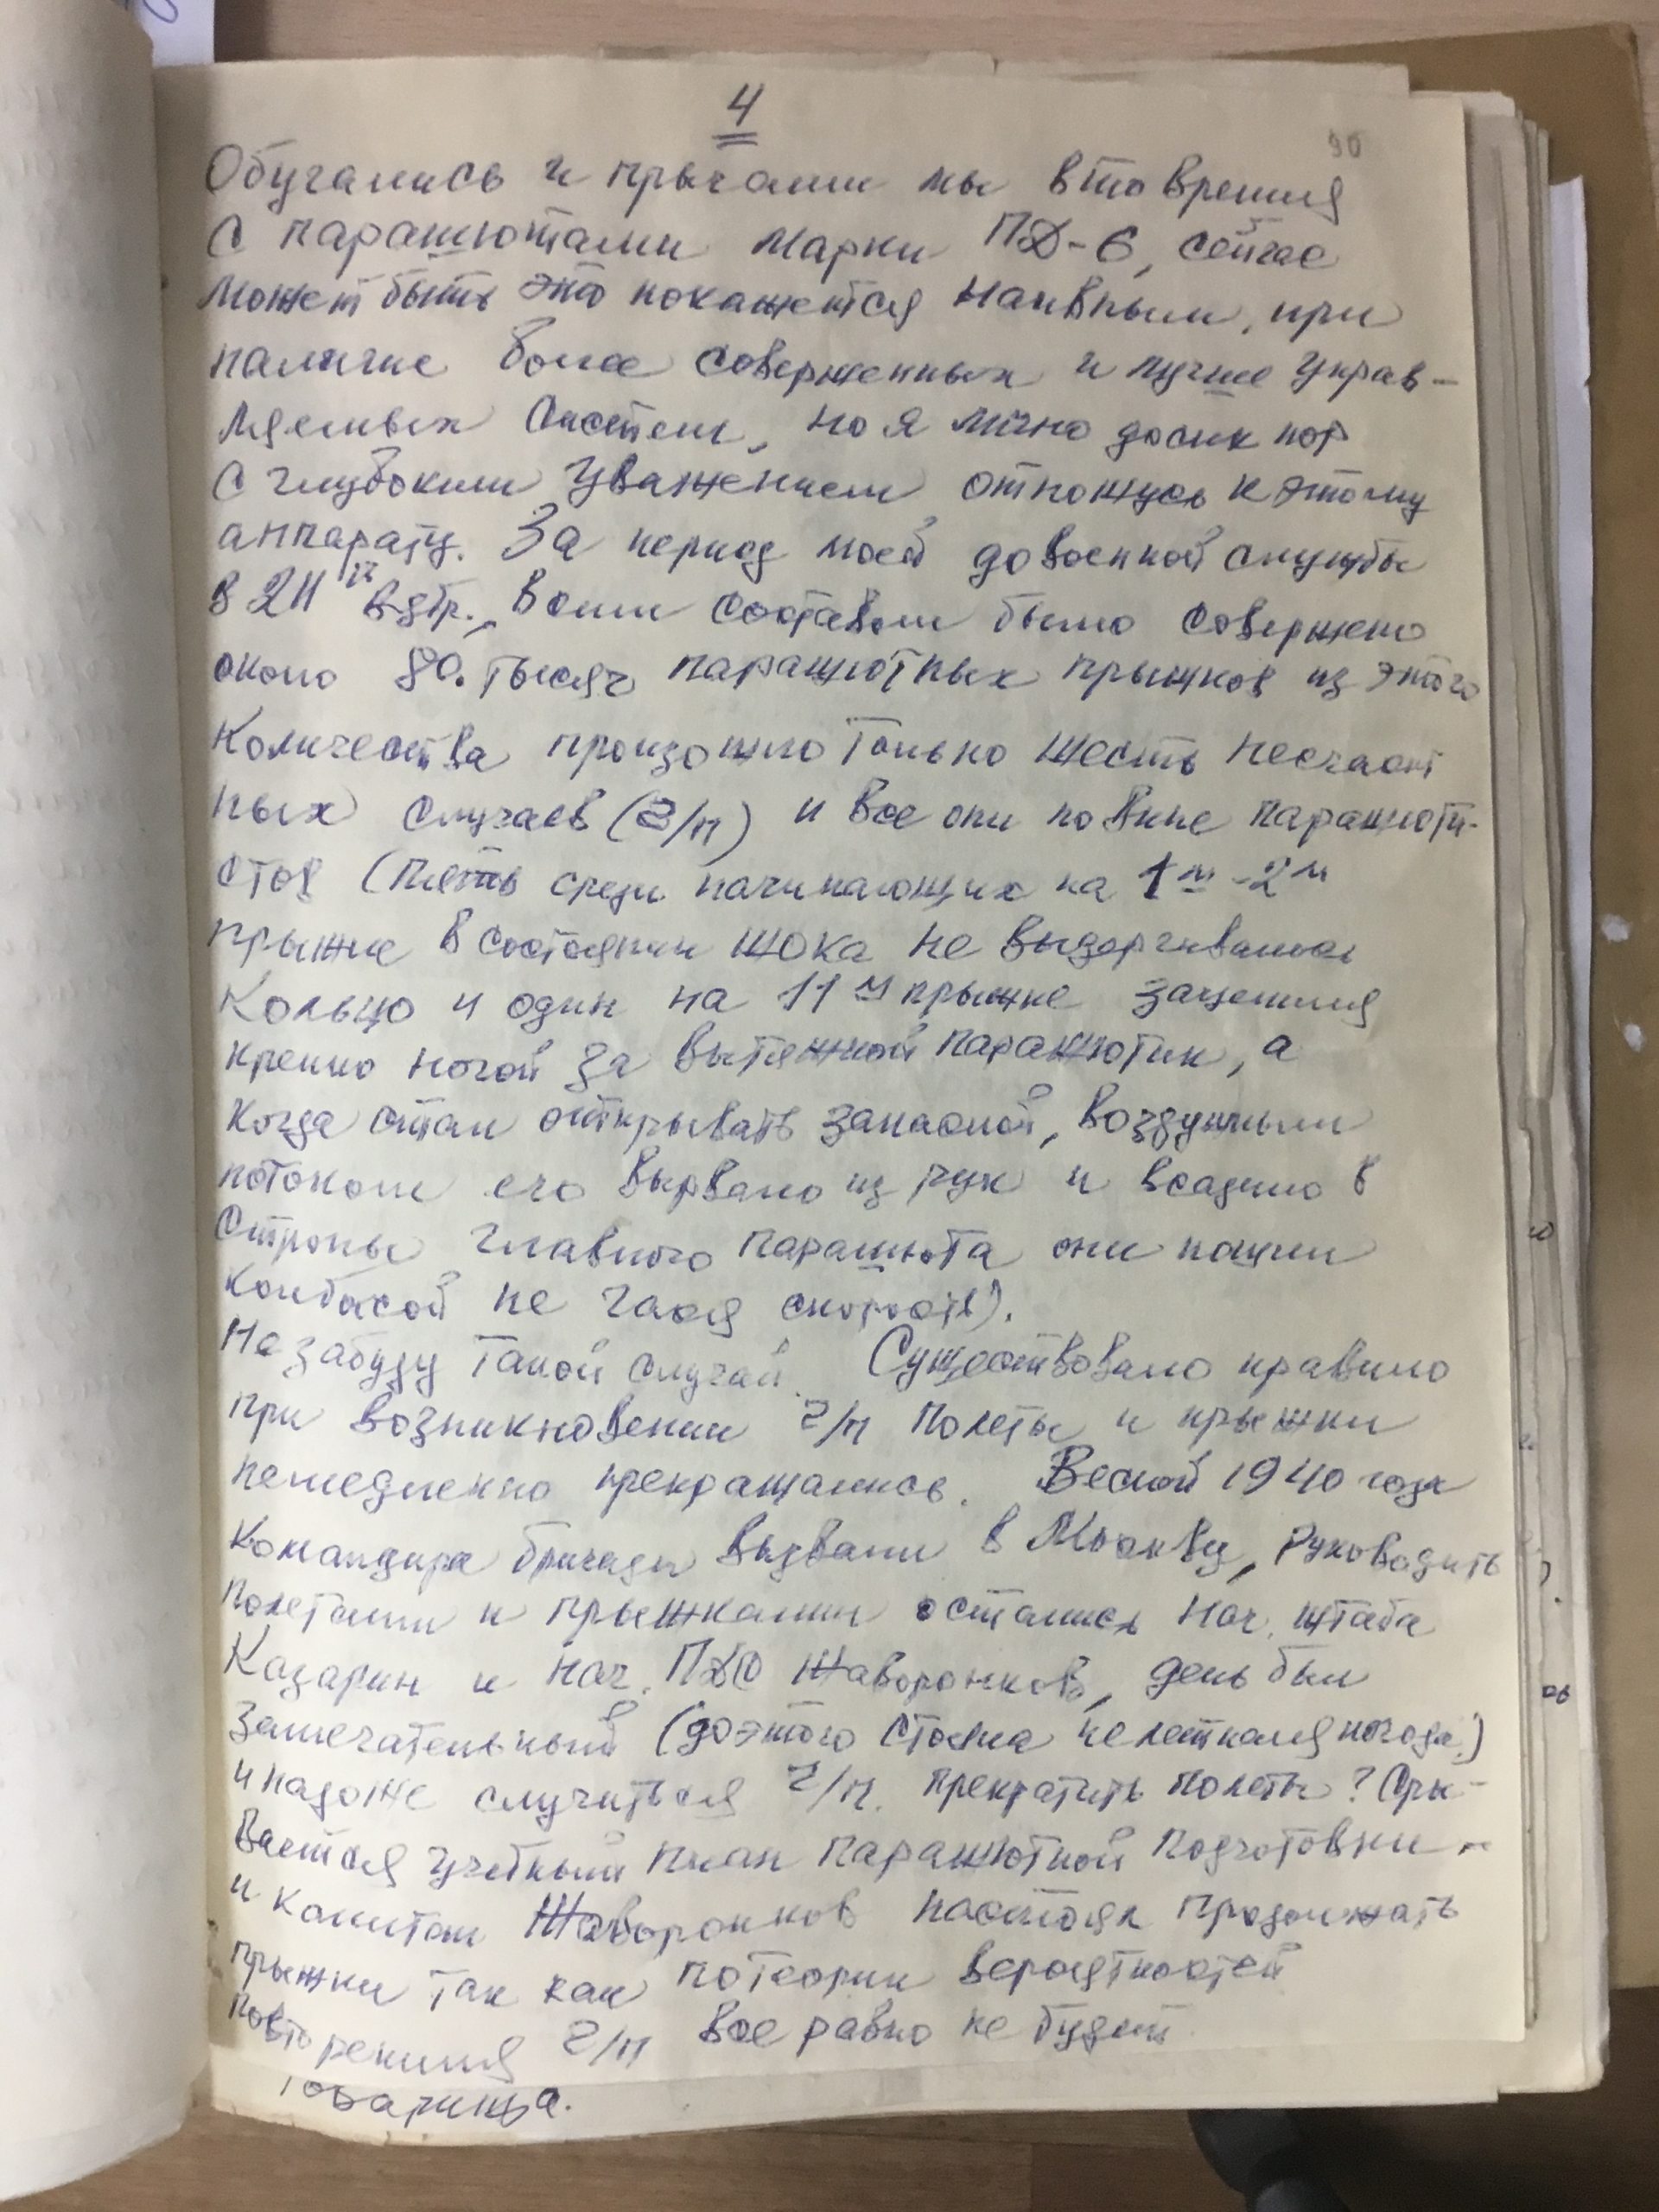 4
90
Обучались и прыгали мы в то время
с парашютами марки ПД-6, сейчас
может быть это покажется наивным, при
наличие более совершенных и лучше управ-
ляемых систем, но я лично досих пор
с глубоким уважением отношусь к этому
аппарату. За период моей довоенной службы
в 211й вдбр., всем составом было совершено
около 80. тысяч парашютных прыжков из этого
количества произошло только шесть несчаст
ных случаев (ч/п) и все они по вине парашюти-
стов (пять среди начинающих на 1м-2м
прыжке в состоянии шока не выдергивали
кольцо и один на 11м прыжке зацепился
крепко ногой за вытяжной парашютик, а
когда стал открывать запасной, воздушным
потоком его вырвало из рук и всадило в
стропы главного парашюта они пошли
колбасой не гася скорость).
Не забуду такой случай. Существовало правило
при возникновении ч/п полеты и прыжки
немедленно прекращались. Весной 1940 года
Командира бригады вызвали в Москву, руководить
полетами и прыжками остались нач. штаба
Казарин и нач. ПДС Жаворонков, день был
замечательный (до этого стояла не летная погода)
и надоже случиться ч/п. прекратить полеты? Сры-
вается учебный план парашютной подготовки
и капитан Жаворонков настоял продолжать
прыжки так как по теории вероятностей
повторения ч/п все равно не будет
товарища.